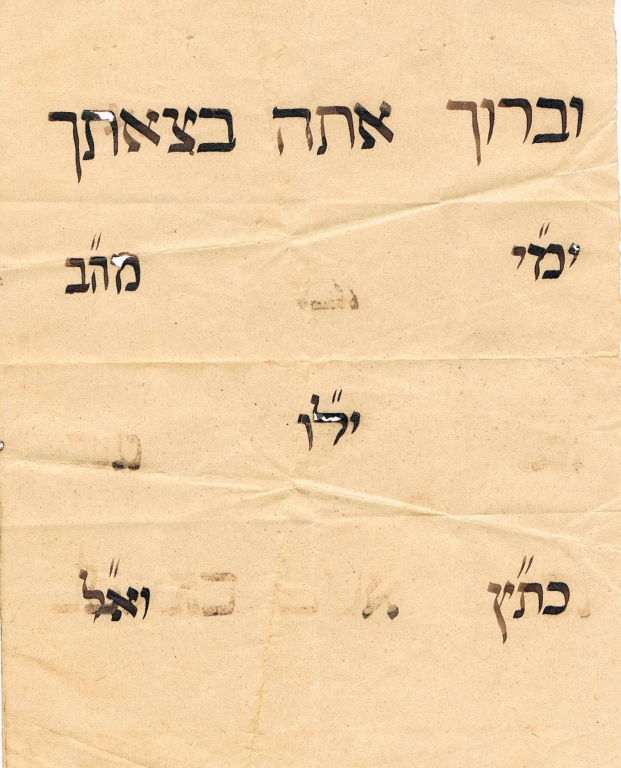 וברוך אתה בצאתך
ימ״י מה״ב
יל״ו
כת״ץ וא״ל